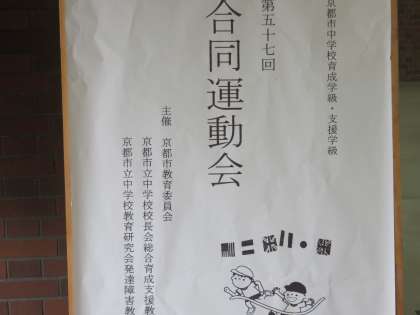 京都市中学校育成学級・支援学級
第五十七回
合同運動会
主催 京都市教育委員会
京都市立中学校校長会総合育成支援教
京都市立中学校教育研究会発達障害教